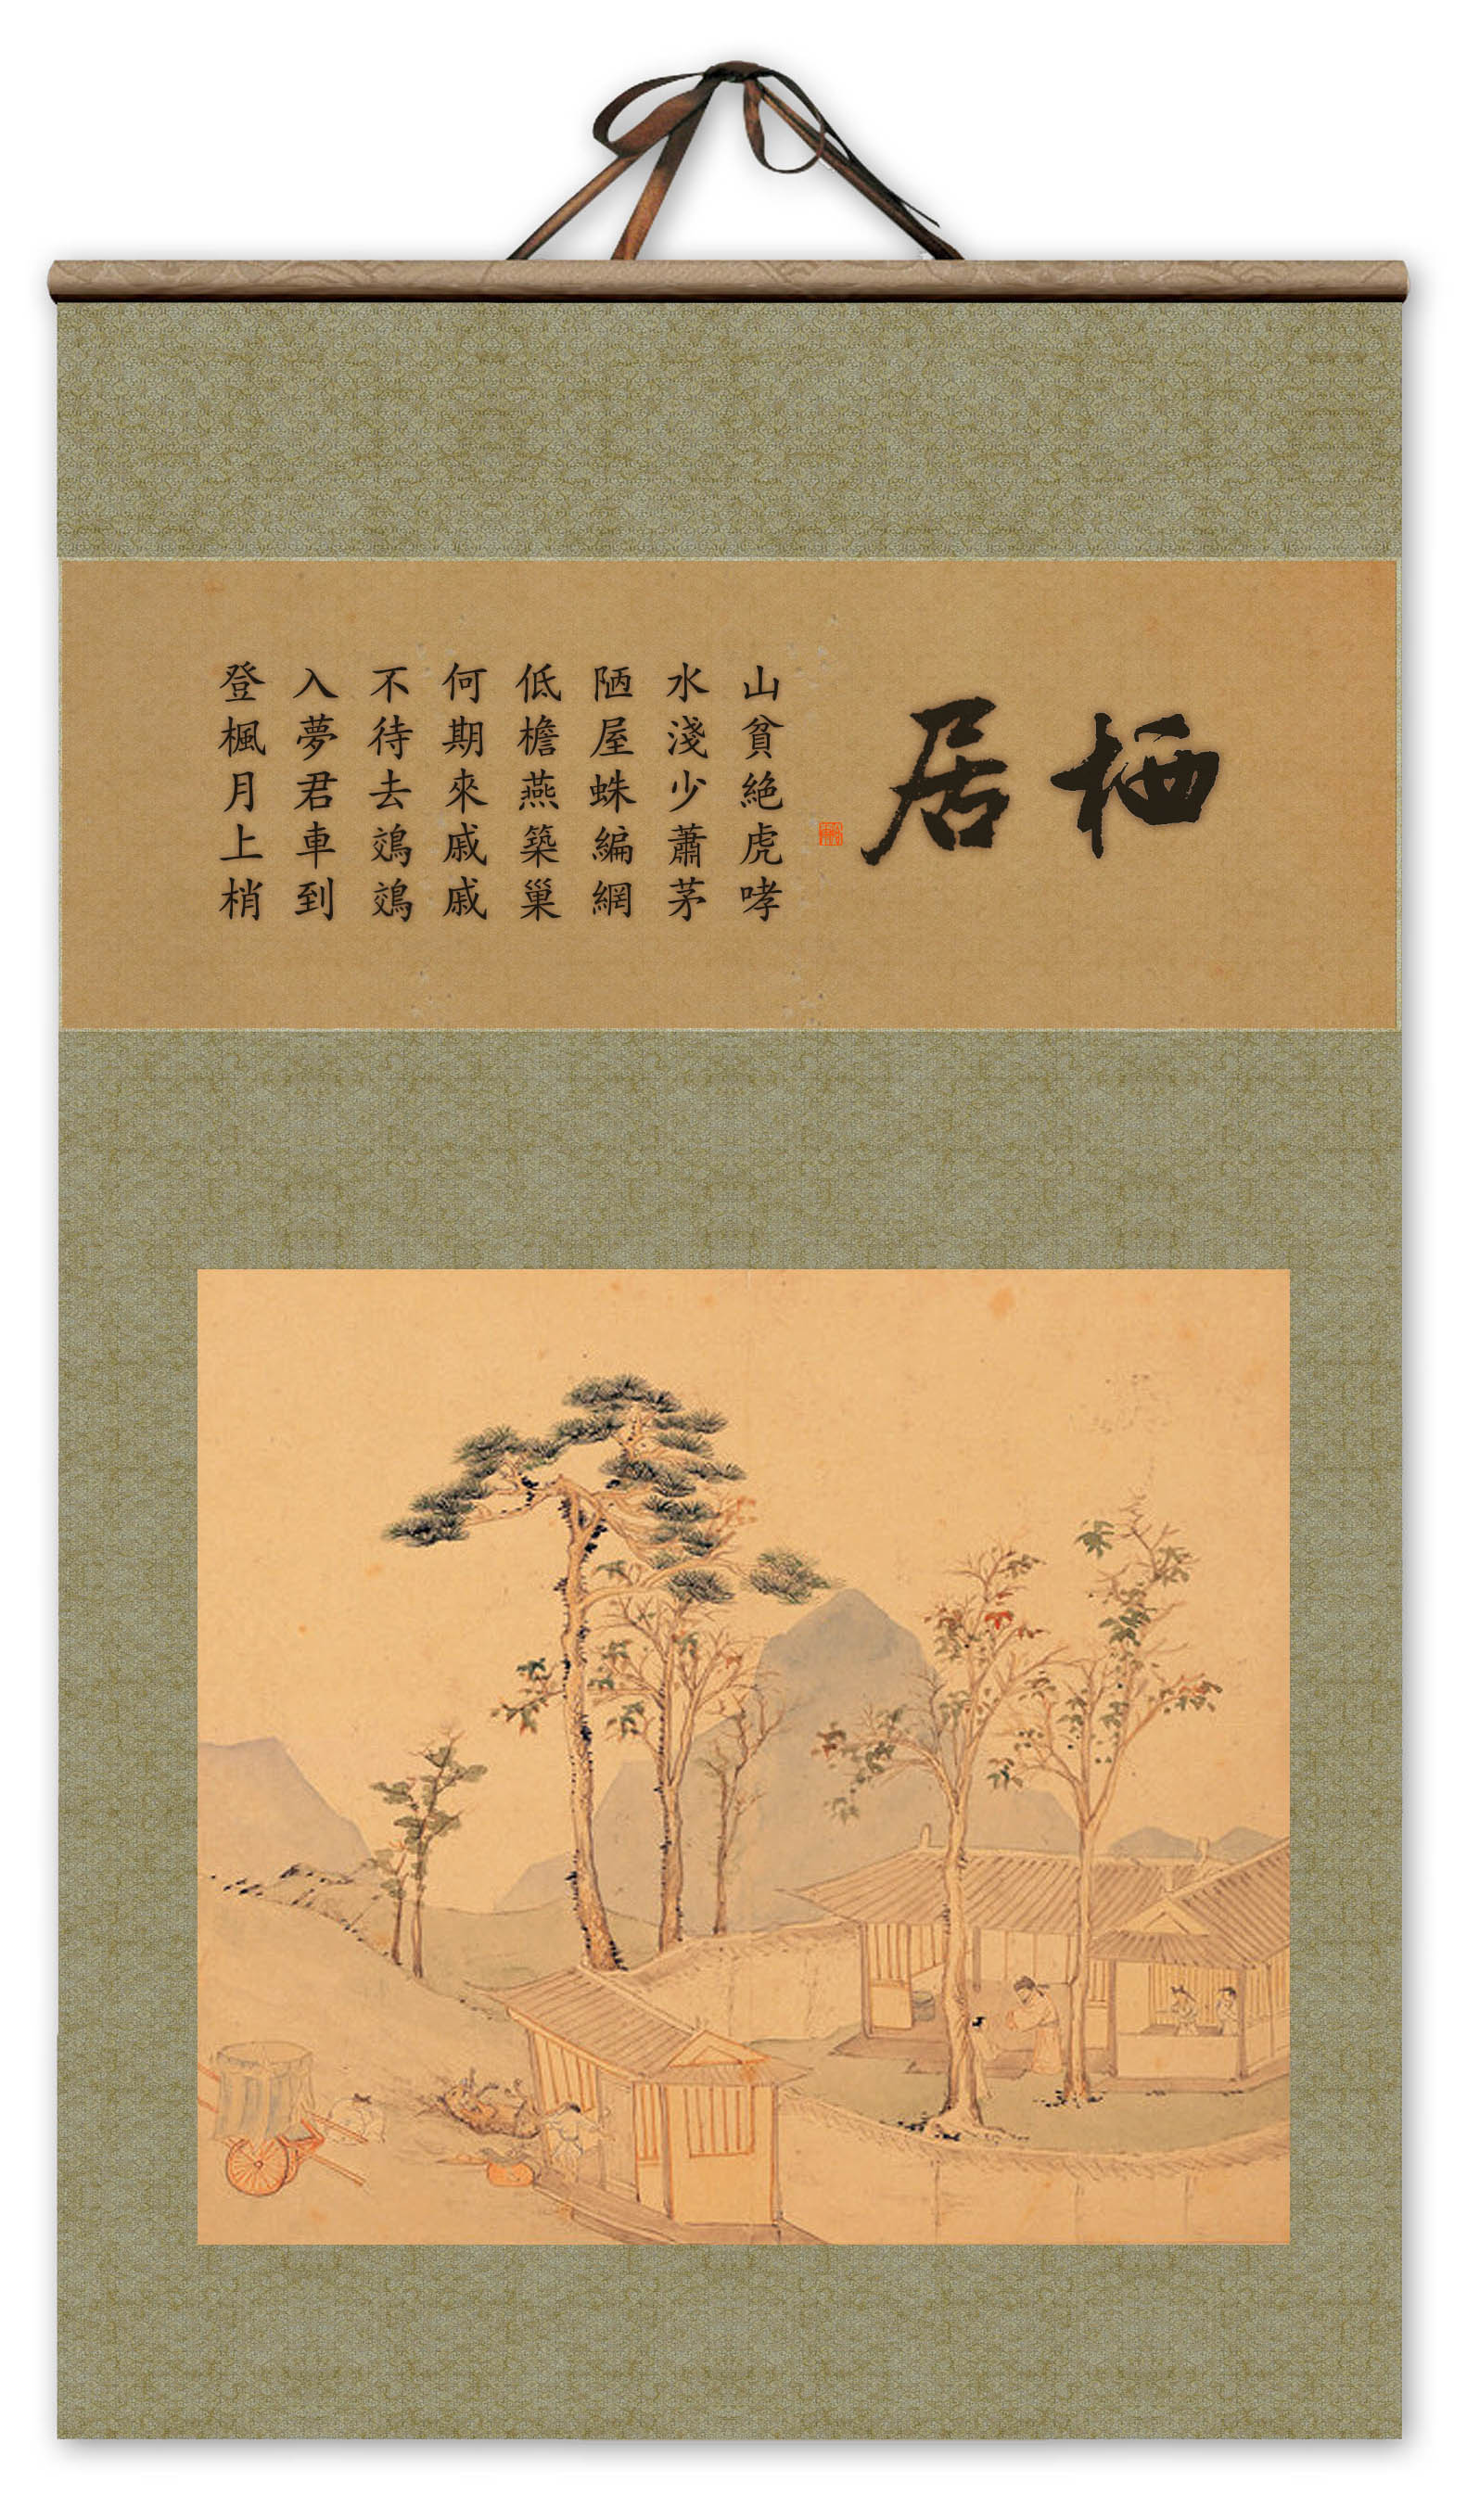 栖居
山貧絶虎哮
水淺少蕭茅
陋屋蛛編網
低檐燕築巢
何期來戚戚
不待去鵁鵁
入夢君車到
登楓月上梢